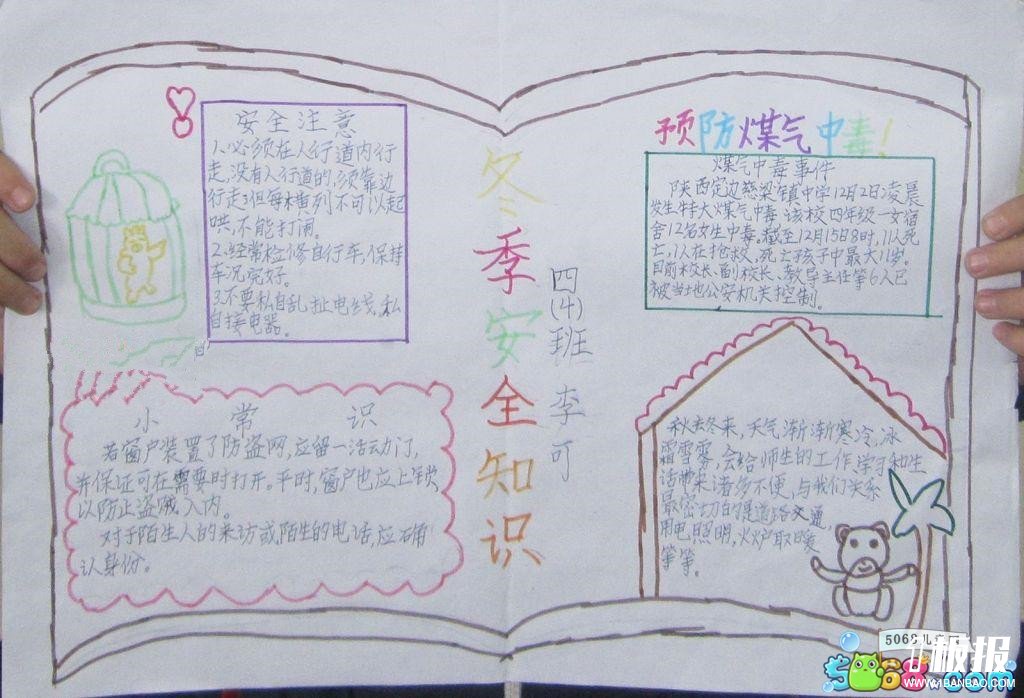 安全注意
1.必须在人行道内行
走,没有人行道的,须靠边
行走3但每木横列不可以起
哄,不能打闹。
2.经常检修自行车,保持
车况完好。
3.不要私自乱扯电线,私
自接电器。
小常识
若窗户装置了防盗网,应留一活动门,
并保证可在需要时打开。平时,窗户也应上锁
以防止盗贼入内。
对于陌生人的来访或陌生的电话,应确
认身份。
冬季安全知识
四(4)班 李可
预防煤气中毒!
煤气中毒事件
陕西定边慈梁镇中学12月2日凌晨
发生特大煤气中毒该校四年级一女宿
舍12名女生中毒。截至12月15日8时,11人死
亡,1人在抢救,死亡孩子中最大11岁。
目前校长、副校长、教导主任等6人已
被当地公安机关控制。
秋去冬来,天气渐渐寒冷,冰
霜雪雾,会给师生的工作学习和生
活带来诸多不便,与我们关系
最密切的是道路交通,
用电照明,火炉取暖
等等。
5068儿童
1极报
WWW.1BANBAO.COM